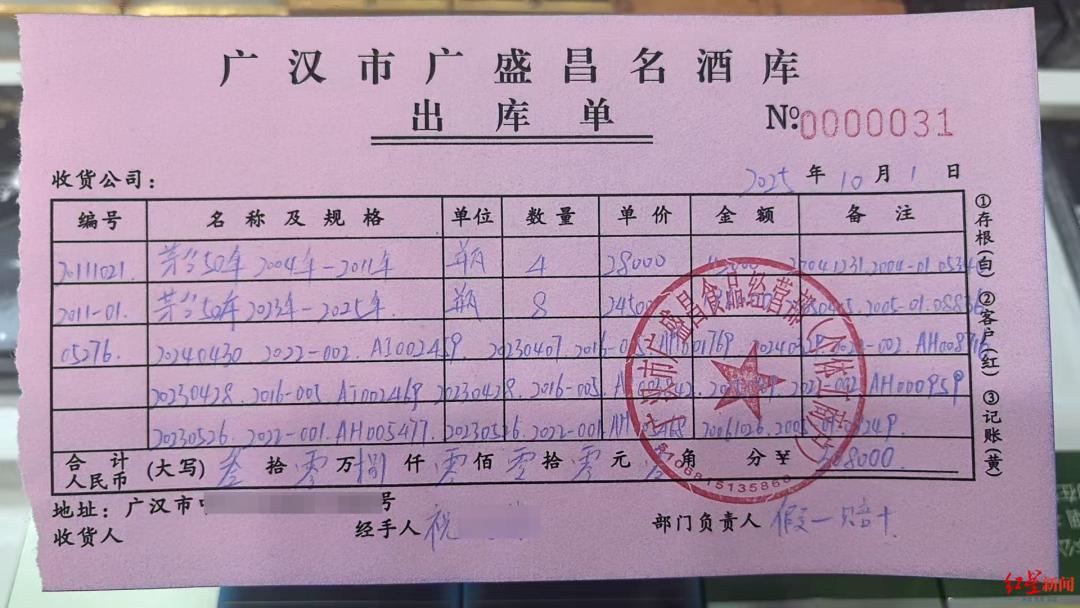 广汉市广盛昌名酒库
出库单
№:0000031
收货公司: 2025年10月1日
编号 名称及规格 单位 数量 单价 金额 备注
20111021. 茅台50年 2004年-2011年 瓶 4 28000 20041231.2004-01.0534
2011-01. 茅台50年 2023年-2025年 瓶 8 24500 2005-01.088
05276. 20240430 2022-002. AI002469. 20230407. 2016-005 2022-002. AH008
20230428. 2016-005 AI002469 20230428. 2016-005. 2022-002 AH000959
20230526. 2022-001. AH005477. 20230526. 2022-001 20061026.
合计人民币 (大写) 叁拾零万捌仟零佰零拾零元 角 分¥ 308000
地址:广汉市 号
收货人 经手人 祝 部门负责人 假一赔十
①存根(白) ②客户(红) ③记账(黄)
红星新闻